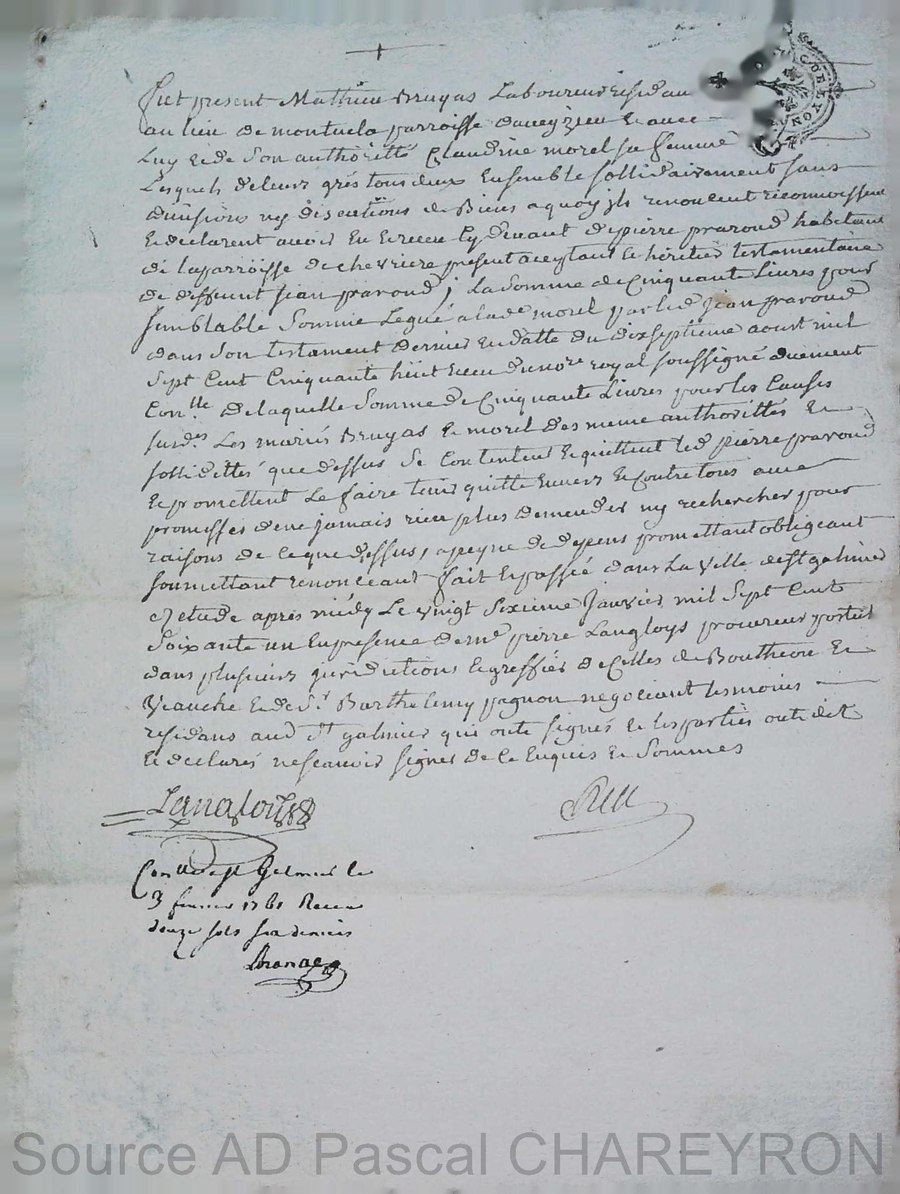 Fut present Mathieu Bruyas Laboureur residant
au lieu de montuela parroisse daveyzieu et avec
Luy et de Son authoritté Claudine morel sa femme
Lesquels de leurs grés tous deux Ensemble sollidairement sans
division ny discutions de Biens a quoy ils renoncent reconnoissent
et declarent avoir Eu et receu Cy devant de pierre pravoud habitant
de la parroisse de chevriere present aceptant et héritier testamentaire
de deffunt jean pravoud, La Somme de Cinquante Livres pour
semblable Somme Legué a lade morel par led jean pravoud
dans Son testament dernier En datte du dixseptieme aoust mil
Sept Cent Cinquante huit receu du nore royal soussigné duement
Conllé de laquelle Somme de Cinquante Livres pour les Causes
susdes Les mariés Bruyas et morel des meme authorittés et
sollidittés que dessus Se Contentent et quittent led pierre pravoud
et promettent Le faire tenir quitte Envers et Contre tous avec
promesses de ne jamais rien plus demender ny rechercher pour
raisons de Ce que dessus, a peyne de depens promettant obligeant
soumettant renonceant fait et passé dans La ville de St galmier
Etude apres midy Le vingt Sixieme Janvier mil Sept Cent
Soixante un En presence de me pierre Langloys procureur postulé
dans plusieurs juridictions et greffier de Celles de Bouthéon et
Veauche et de Sr Barthelemy pagnon negociant temoins
residans aud St galmier qui onts signés et les parties onts dit
et declarés ne scavoir signer de Ce Enquis et Sommés
Langloys
Conllé a St Galmier le
3 fevrier 1761 Receu
douze sols six deniers
CUREYRON
Source AD Pascal CHAREYRON